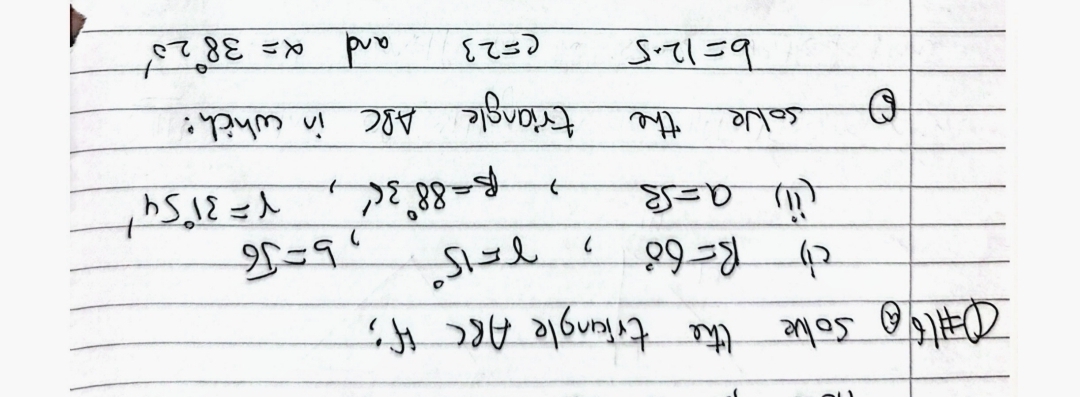 Q#16 (a) Solve the triangle ABC if;
(i) β=60° , γ=15° , b=√6
(ii) a=53 , β=88°36' , γ=31°54'
(b) solve the triangle ABC in which:
b=12.5 c=23 and α=38°20'